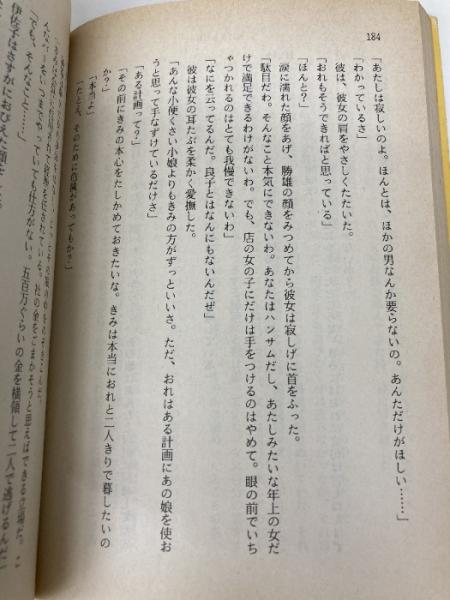 184
「あたしは寂しいのよ。ほんとは、ほかの男なんか要らないの。あんただけがほしい……」
「わかっているさ」
彼は、彼女の肩をやさしくたたいた。
「おれもそうできればと思っている」
「ほんと？」
涙に濡れた顔をあげ、勝雄の顔をみつめてから彼女は寂しげに首をふった。
「駄目だわ。そんなこと本気にできないわ。あなたはハンサムだし、あたしみたいな年上の女だ
けで満足できるわけがないわ。でも、店の女の子にだけは手をつけるのはやめて。眼の前でいち
ゃつかれるのはとても我慢できないわ」
「なにを云ってるんだ。良子とはなんにもないんだぜ」
彼は彼女の耳たぶを柔かく愛撫した。
「あんな小便くさい小娘よりもきみの方がずっといいさ。ただ、おれはある計画にあの娘を使お
うと思って手なずけているだけさ」
「ある計画って？」
「その前にきみの本心をたしかめておきたいな。きみは本当におれと二人きりで暮したいの
か？」
「本当よ」
「たとえ、そのために危険があってもか？」
伊佐子はさすがにおびえた顔を
「でも、そんなこと
いつまでやっていても仕方がない。五百万ぐらいの金を横領して二人で逃げるんだ
社の金をごまかそうと思えばできる立場だ。こ